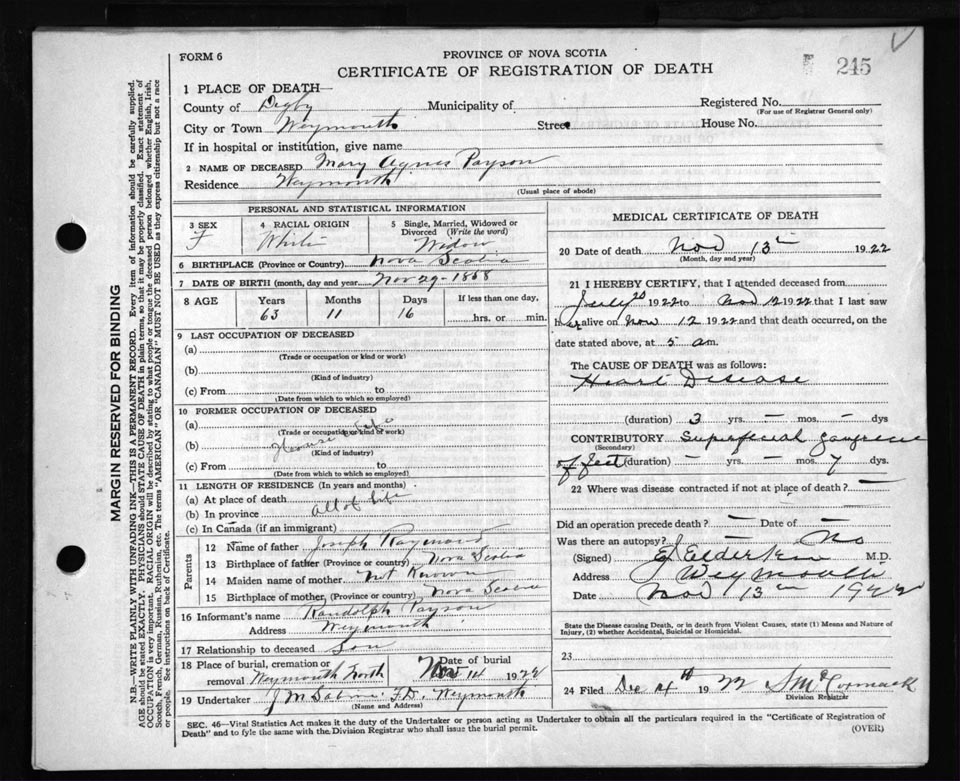 FORM 6
PROVINCE OF NOVA SCOTIA
CERTIFICATE OF REGISTRATION OF DEATH
245
1 PLACE OF DEATH—
County of Digby Municipality of Registered No.
(For use of Registrar General only)
City or Town Weymouth Street House No.
If in hospital or institution, give name
2 NAME OF DECEASED Mary Agnes Payson
Residence Weymouth
(Usual place of abode)
PERSONAL AND STATISTICAL INFORMATION
3 SEX 4 RACIAL ORIGIN 5 Single, Married, Widowed or Divorced (Write the word)
F White Widow
6 BIRTHPLACE (Province or Country) Nova Scotia
7 DATE OF BIRTH (month, day and year) Nov 29 - 1858
8 AGE Years Months Days If less than one day,
63 11 16 hrs. or min.
9 LAST OCCUPATION OF DECEASED
(a)
(Trade or occupation or kind or work)
(b)
(Kind of industry)
(c) From to
(Date from which to which so employed)
10 FORMER OCCUPATION OF DECEASED
(a)
(Trade or occupation or kind or work)
(b) House wife
(Kind of industry)
(c) From to
(Date from which to which so employed)
11 LENGTH OF RESIDENCE (In years and months)
(a) At place of death
(b) In province all of life
(c) In Canada (if an immigrant)
Parents
12 Name of father Joseph Raymond
13 Birthplace of father (Province or country) Nova Scotia
14 Maiden name of mother not Known
15 Birthplace of mother, (Province or country) Nova Scotia
16 Informant's name Randolph Payson
Address Weymouth
17 Relationship to deceased Son
18 Place of burial, cremation or removal Weymouth North Date of burial Nov 14 1922
19 Undertaker J M Sabine F.D. Weymouth
(Name and Address)
MEDICAL CERTIFICATE OF DEATH
20 Date of death Nov 13th 1922
(Month, day and year)
21 I HEREBY CERTIFY, that I attended deceased from
July 1922 to Nov 12 1922 that I last saw
her alive on Nov 12 1922 and that death occurred, on the
date stated above, at 5 am.
The CAUSE OF DEATH was as follows:
Heart Disease
(duration) 3 yrs. — mos. — dys
CONTRIBUTORY Superficial gangrene
(Secondary)
of feet (duration) — yrs. — mos. 7 dys.
22 Where was disease contracted if not at place of death? —
Did an operation precede death? — Date of —
Was there an autopsy? No
(Signed) Elderkin M.D.
Address Weymouth
Date Nov 13th 1922
State the Disease causing Death, or in death from Violent Causes, state (1) Means and Nature of Injury, (2) whether Accidental, Suicidal or Homicidal.
23
24 Filed Dec 4th 1922 S McCormack
Division Registrar
SEC. 46—Vital Statistics Act makes it the duty of the Undertaker or person acting as Undertaker to obtain all the particulars required in the "Certificate of Registration of
Death" and to fyle the same with the Division Registrar who shall issue the burial permit. (OVER)
MARGIN RESERVED FOR BINDING
N.B.—WRITE PLAINLY WITH UNFADING INK—THIS IS A PERMANENT RECORD. Every item of information should be carefully supplied.
AGE should be stated EXACTLY. PHYSICIANS should STATE CAUSE OF DEATH in plain terms, so that it may be properly classified. Exact statement of
OCCUPATION is very important. RACIAL ORIGIN will be described by stating to what people or tongue the deceased person belonged whether English, Irish,
Scotch, French, German, Russian, Ruthenian, etc. The terms "AMERICAN" OR "CANADIAN" MUST NOT BE USED as they express citizenship but not a race
or people. See instructions on back of Certificate.